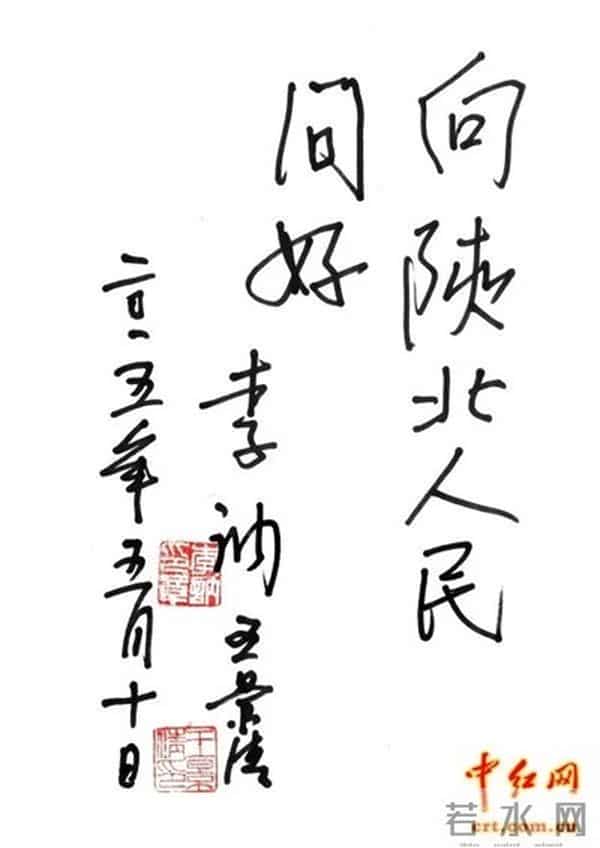 向陕北人民
问好
李讷
王景清
二〇一五年五月十日
李讷之章
王景清印
中红网
crt.com.cn
若水网